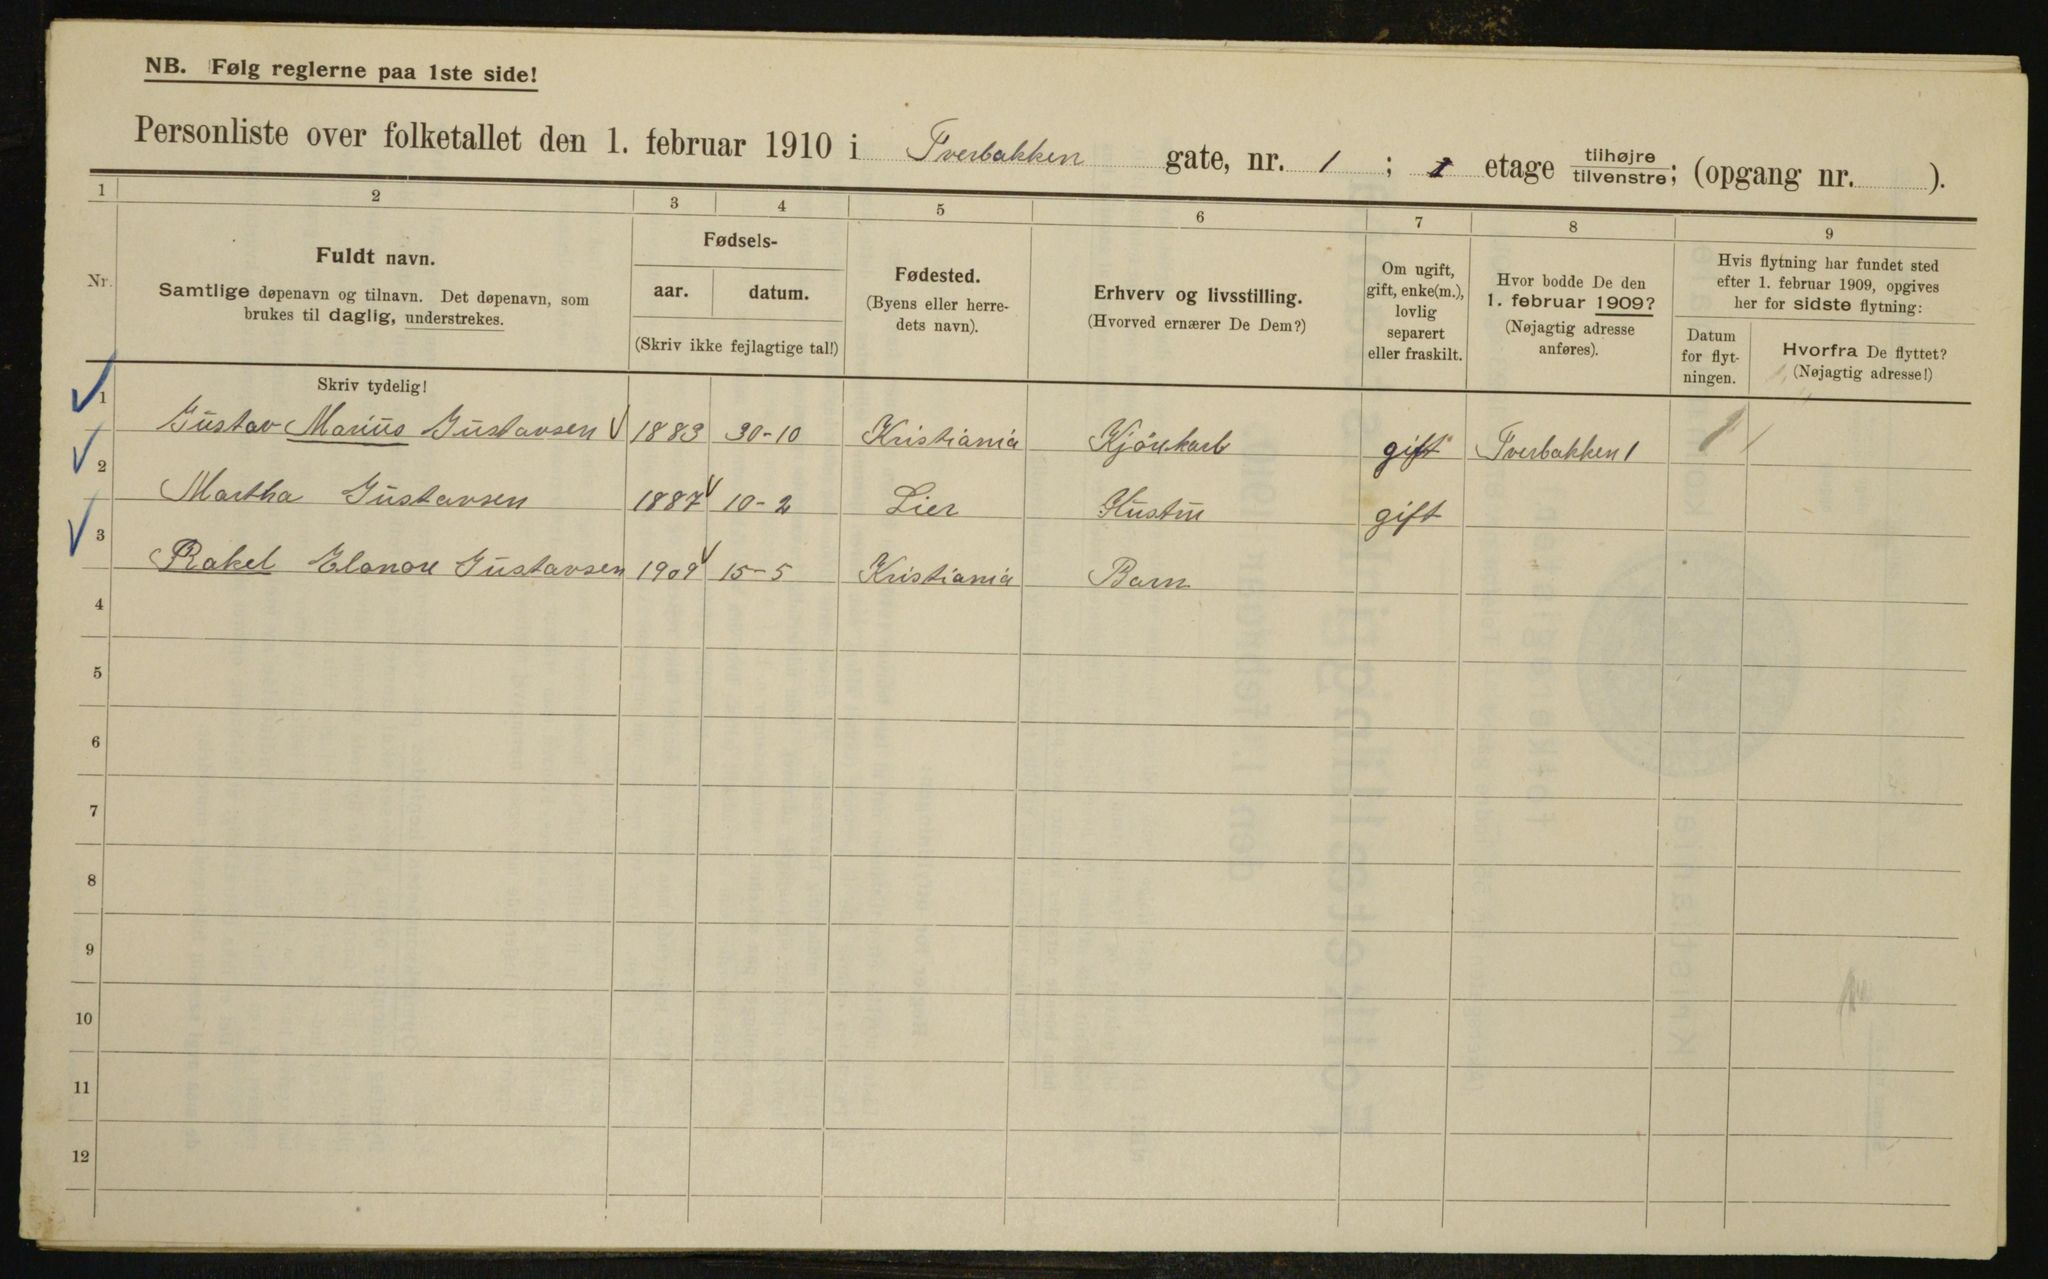 NB. Følg reglerne paa 1ste side!
Personliste over folketallet den 1. februar 1910 i Tverbakken gate, nr. 1 ; 1 etage tilhøjre tilvenstre; (opgang nr. ).
1 2 3 4 5 6 7 8 9
Nr.
Fuldt navn.
Samtlige døpenavn og tilnavn. Det døpenavn, som
brukes til daglig, understrekes.
Skriv tydelig!
Fødsels-
aar. datum.
(Skriv ikke fejlagtige tal!)
Fødested.
(Byens eller herre-
dets navn).
Erhverv og livsstilling.
(Hvorved ernærer De Dem?)
Om ugift,
gift, enke(m.),
lovlig
separert
eller fraskilt.
Hvor bodde De den
1. februar 1909?
(Nøjagtig adresse
anføres).
Hvis flytning har fundet sted
efter 1. februar 1909, opgives
her for sidste flytning:
Datum
for flyt-
ningen.
Hvorfra De flyttet?
(Nøjagtig adresse!)
1 Gustav Marius Gustavsen 1883 30-10 Kristiania gift Tverbakken 1
2 Martha Gustavsen 1887 10-2 Lier Hustru gift
3 Rakel Elonore Gustavsen 1909 15-5 Kristiania Barn
4
5
6
7
8
9
10
11
12